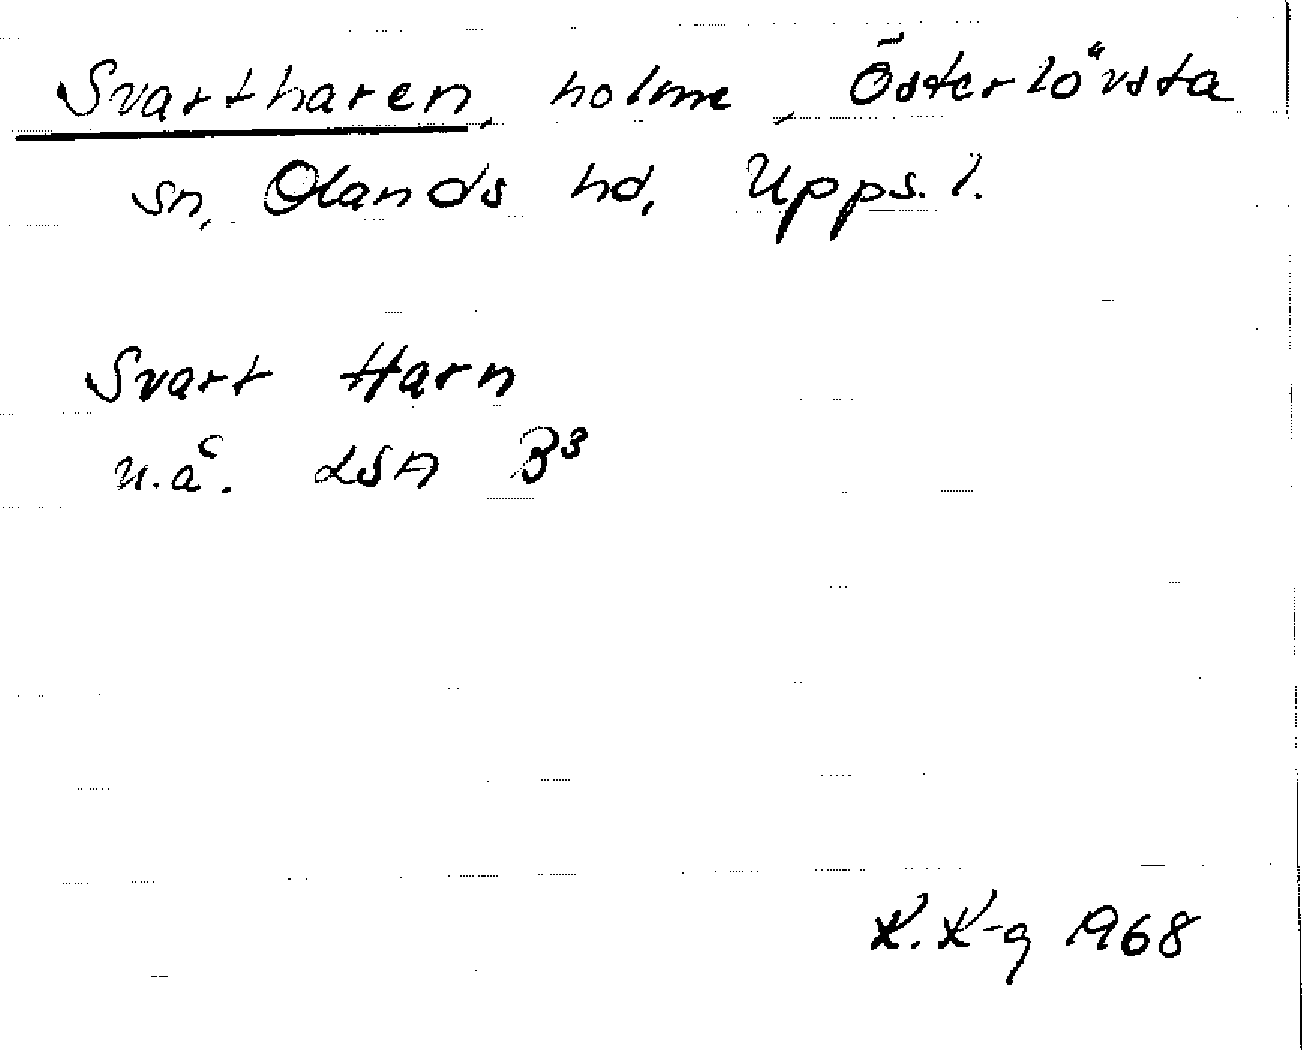 Svartharen, holme, Österlövsta
sn, Olands hd, Upps. l.
Svart Harn
u.å. LSA B3
K. K-g 1968